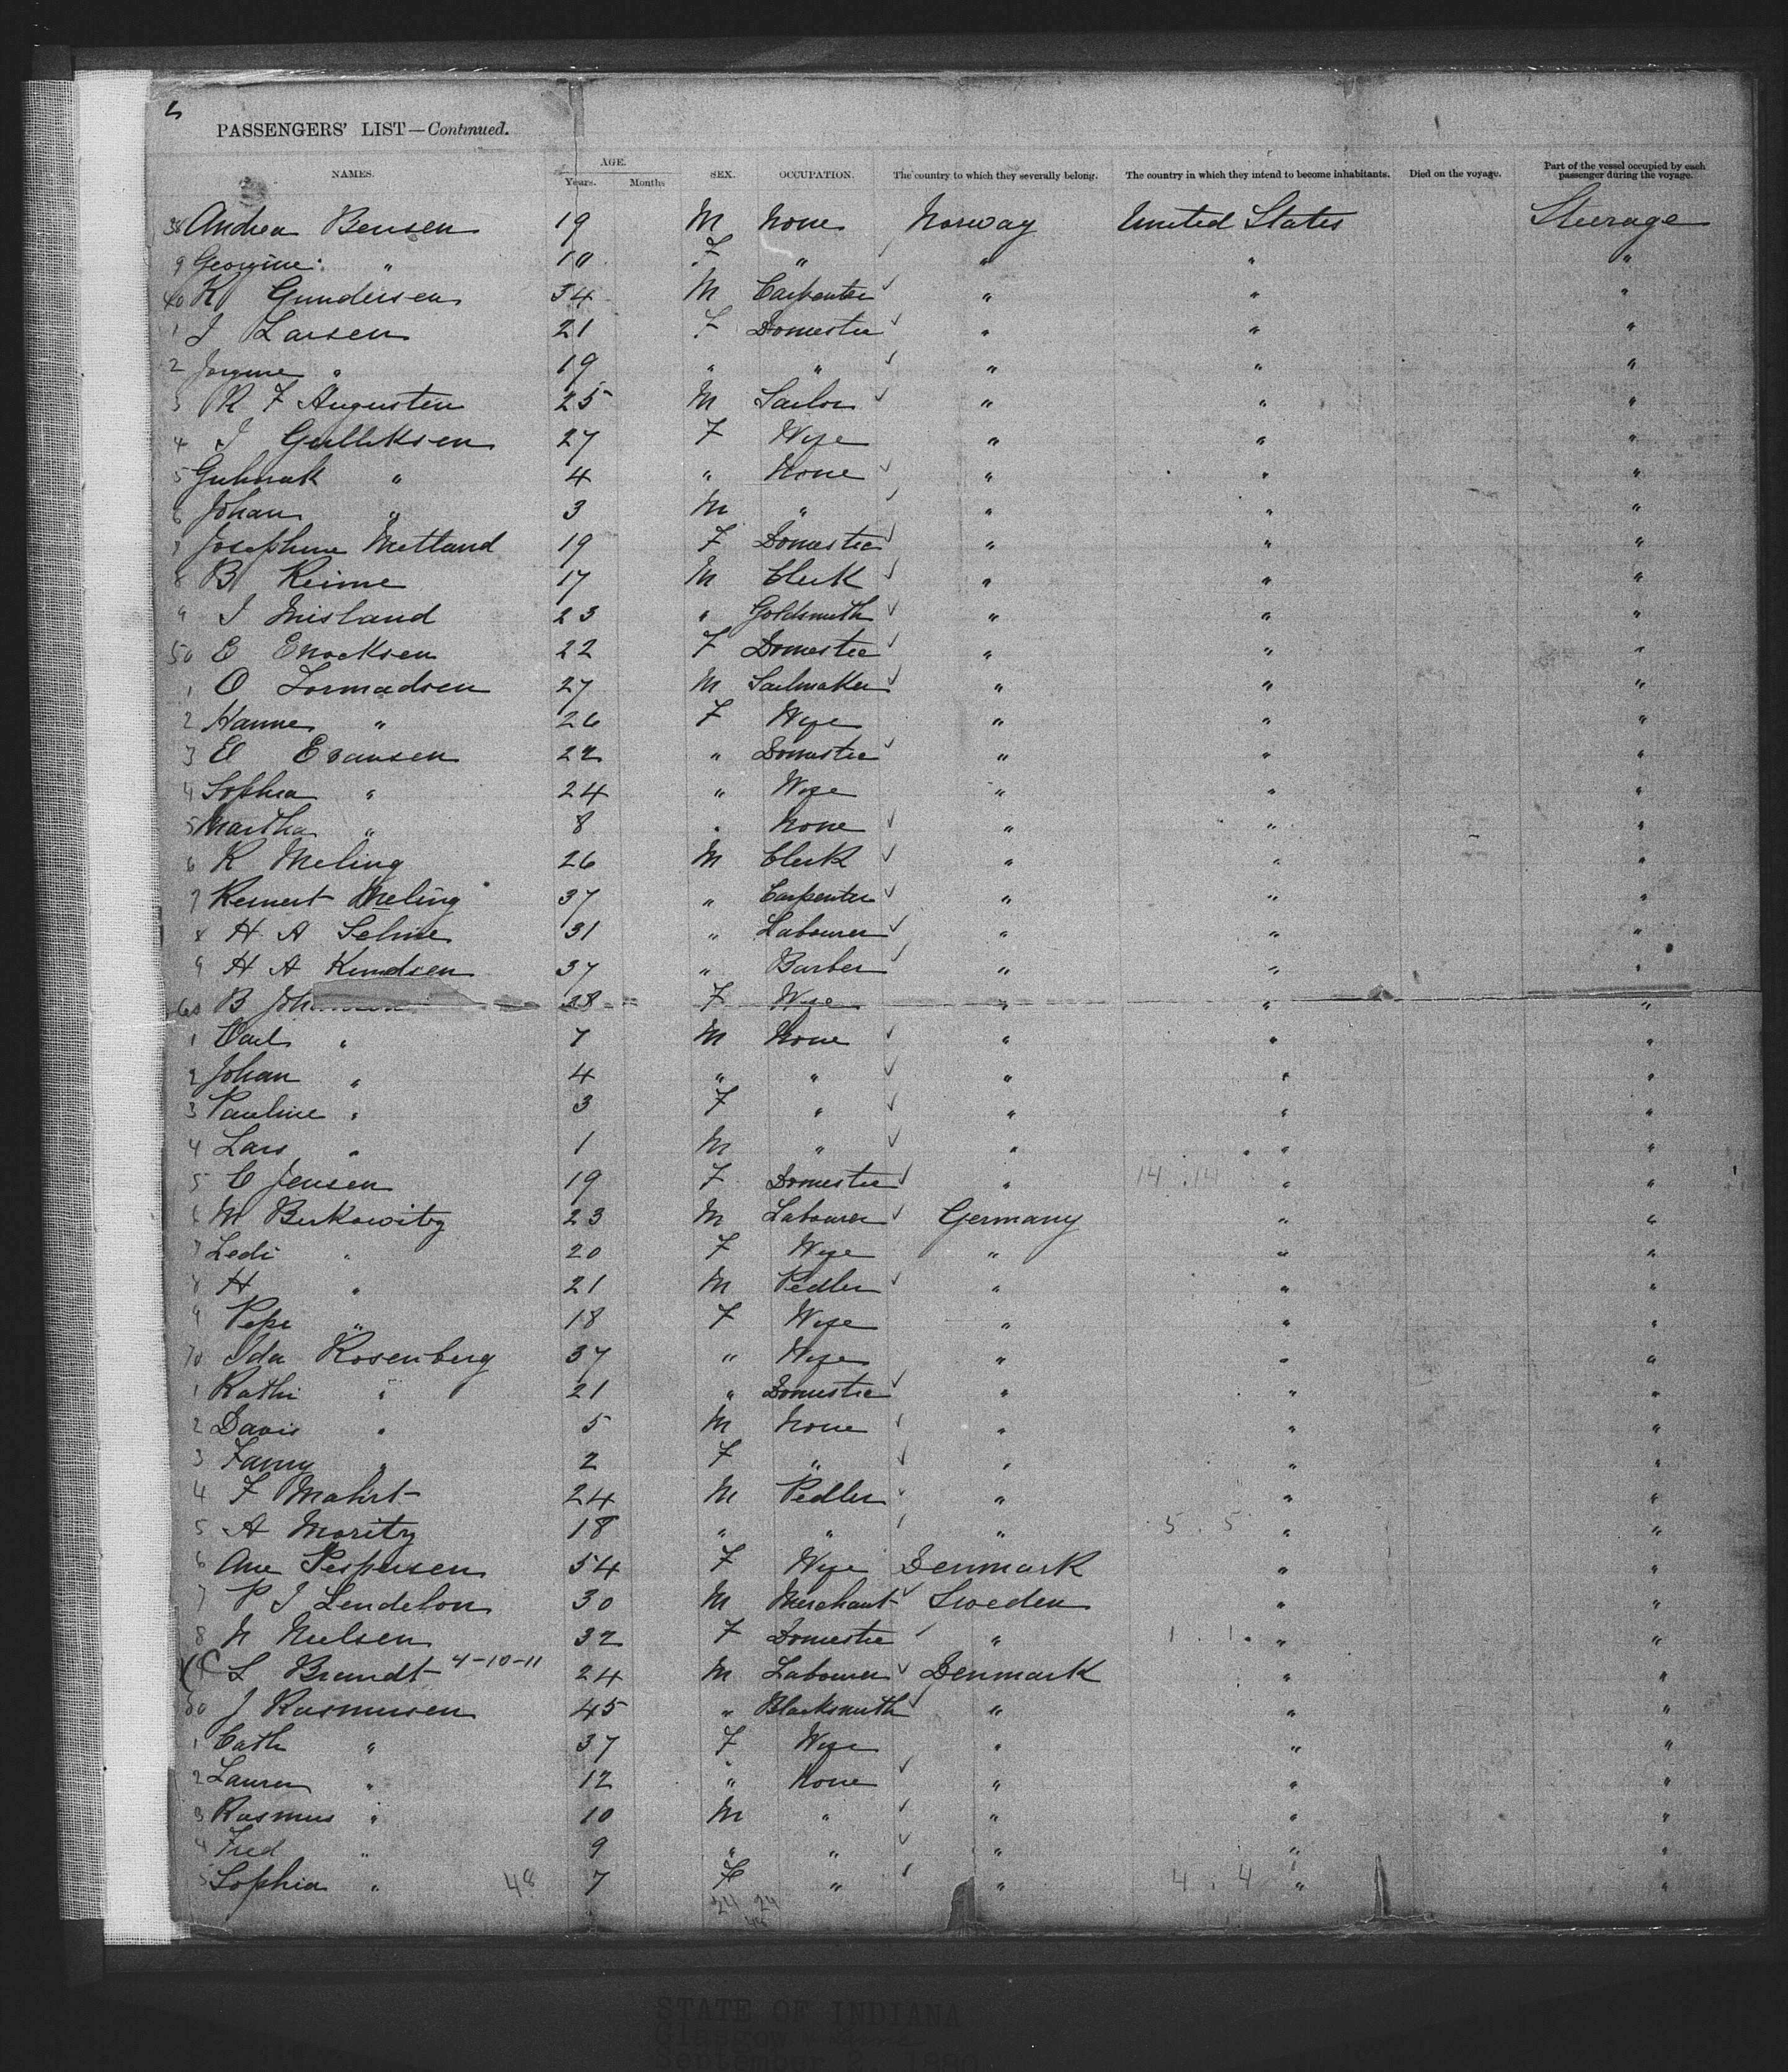 PASSENGERS' LIST—Continued.
NAMES. AGE. Years. Months SEX. OCCUPATION. The country to which they severally belong. The country in which they intend to become inhabitants. Died on the voyage. Part of the vessel occupied by each passenger during the voyage.
38 Andrea Bensen 19 M None Norway United States Steerage
9 Georgine " 10 F " " " "
40 K Gundersen 34 M Carpenter " " "
1 J Larsen 21 F Domestic " " "
2 " 19 " " " " "
3 R F Augusten 25 M Sailor " " "
4 I Gulliksen 27 F Wife " " "
5 " 4 " None " " "
6 Johan " 3 M " " " "
7 Josephine Metland 19 F Domestic " " "
8 B Reime 17 M Clerk " " "
9 I Misland 23 " Goldsmith " " "
50 E Enocksen 22 F Domestic " " "
1 O Tormadsen 27 M Sailmaker " " "
2 Hanne " 26 F Wife " " "
3 El Evansen 22 " Domestic " " "
4 Sophia " 24 " Wife " " "
5 Martha " 8 " None " " "
6 K Meling 26 M Clerk " " "
7 Reinert Meling 37 " Carpenter " " "
8 H A 31 " Labourer " " "
9 H A Knudsen 37 " Barber " " "
60 B 28 F Wife " " "
1 Carl " 7 M None " " "
2 Johan " 4 " " " " "
3 Pauline " 3 F " " " "
4 Lars " 1 M " " " "
5 C Jensen 19 F Domestic " 14 . 14 " "
6 M Berkowitz 23 M Labourer Germany " "
7 Ledi " 20 F Wife " " "
8 H " 21 M Pedler " " "
9 Pepi " 18 F Wife " " "
70 Ida Rosenberg 37 " Wife " " "
1 Kathi " 21 " Domestic " " "
2 Davis " 5 M None " " "
3 Fanny " 2 F " " " "
4 F 24 M Pedler " " "
5 A Moritz 18 " " " 5 . 5 " "
6 Ane Jespersen 54 F Wife Denmark " "
7 P J 30 M Merchant Sweden " "
8 N Nielsen 32 F Domestic " 1 . 1 " "
L Brandt 4-10-11 24 M Labourer Denmark " "
80 J Rasmusen 45 " Blacksmith " " "
1 Cath " 37 F Wife " " "
2 " 12 " None " " "
3 Rasmus " 10 M " " " "
4 Fred " 9 " " " " "
5 Sophia " 48 7 F " " 4 . 4 " "
24 24
STATE OF INDIANA
Glasgow
September 2, 1880